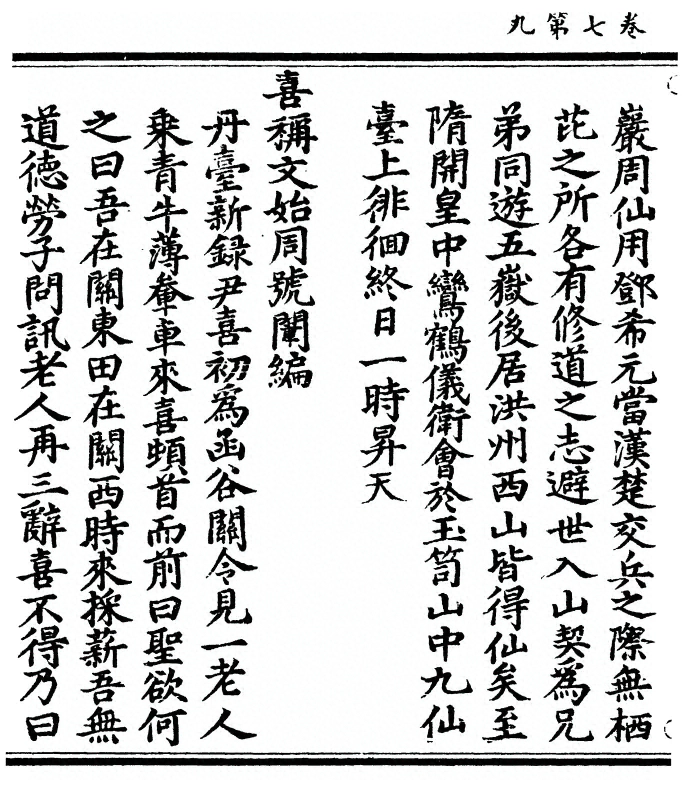 卷七第九
巖周仙用鄧希元當漢楚交兵之際無栖
芘之所各有修道之志避世入山契爲兄
弟同遊五嶽後居洪州西山皆得仙矣至
隋開皇中鸞鶴儀衛會於玉笥山中九仙
臺上徘徊終日一時昇天
喜稱文始周號闡編
丹臺新録尹喜初爲函谷關令見一老人
乘青牛薄軬車來喜頓首而前曰聖欲何
之曰吾在關東田在關西時來採薪吾無
道德勞子問訊老人再三辭喜不得乃曰